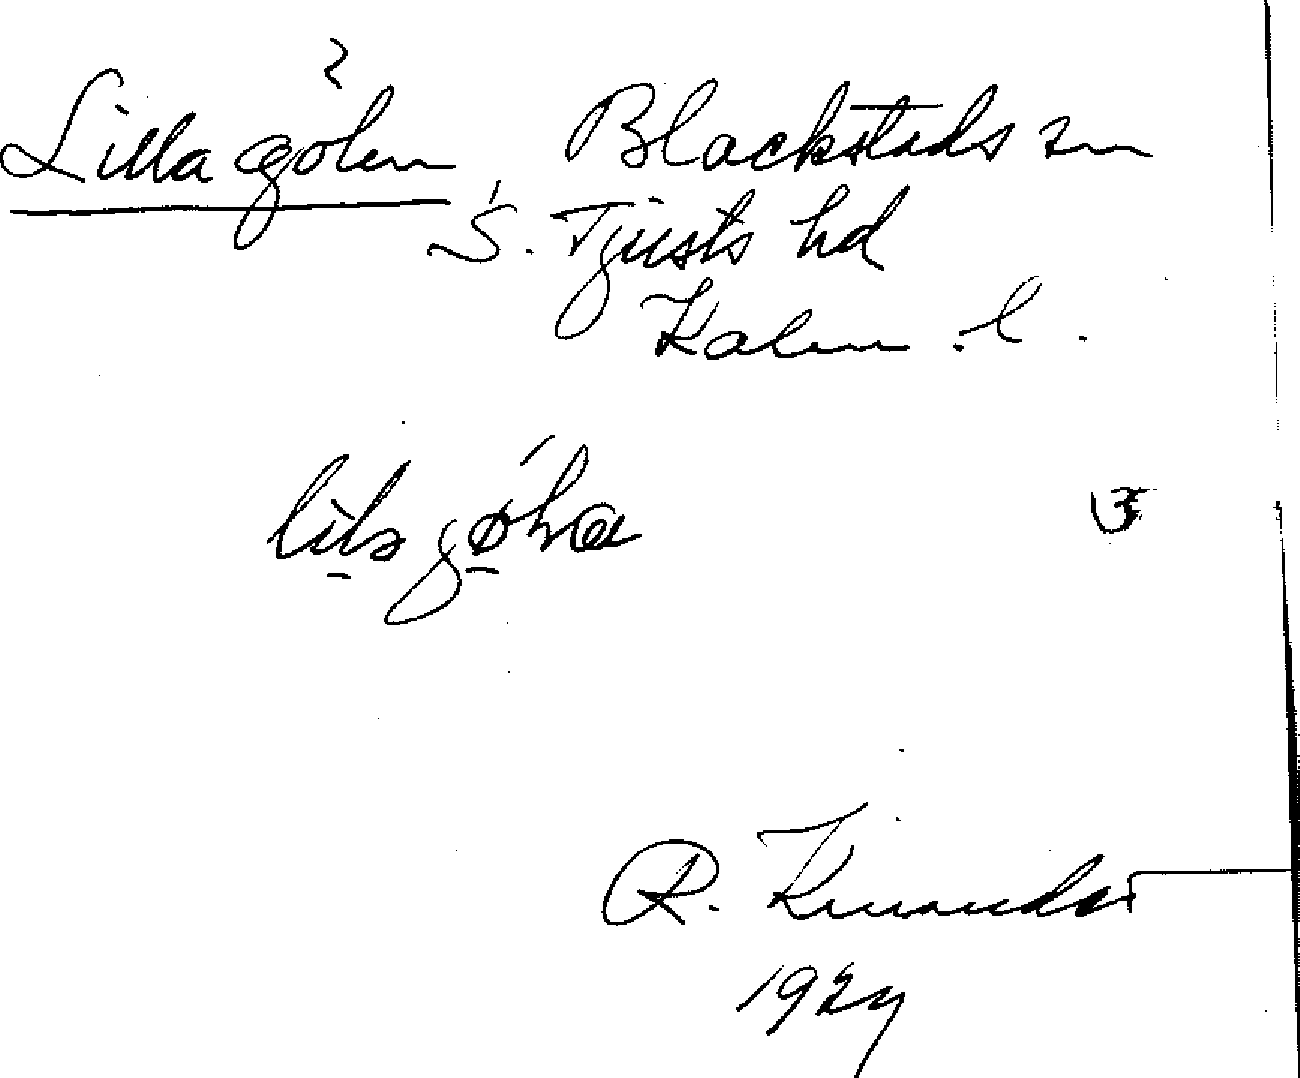 2
Lilla gölen Blackstads sn
S. Tjusts hd
Kalm. l.
3
R. Kinander
1927